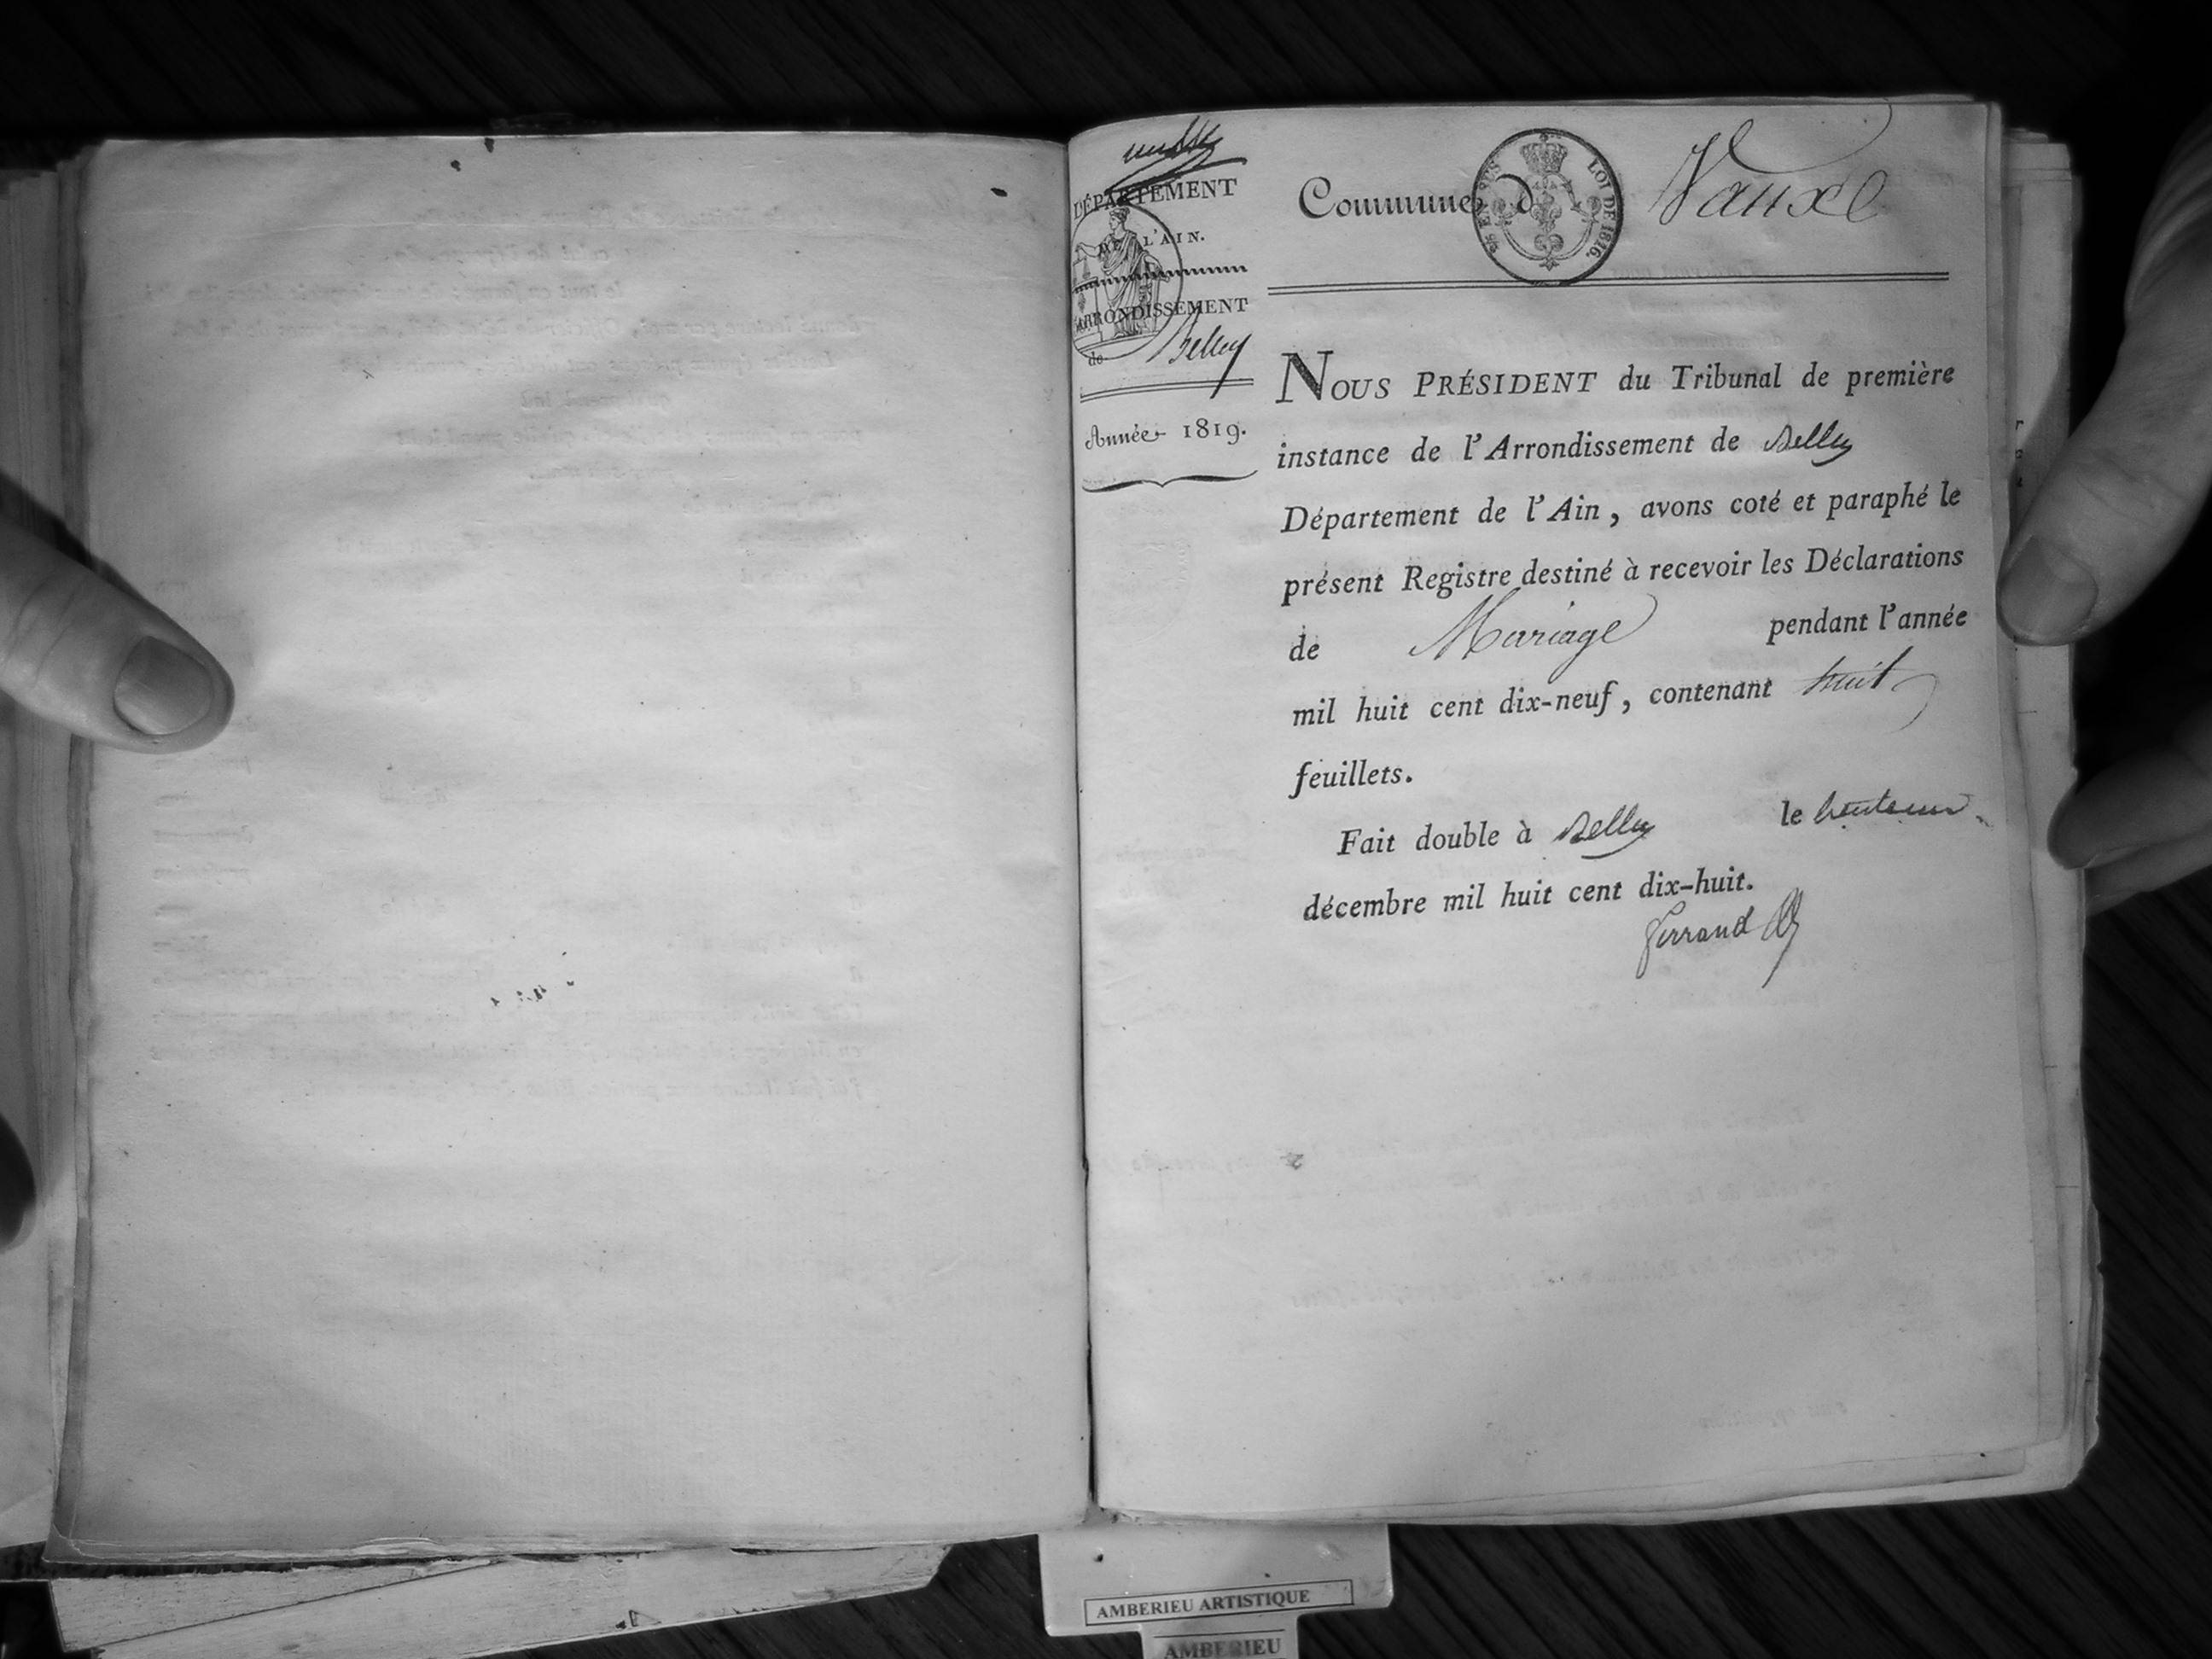 DÉPARTEMENT
DE L'AIN.
ARRONDISSEMENT
de Belley
Année 1819.
Commune d Vaux
EN SUS
LOI DE 1816.
NOUS PRÉSIDENT du Tribunal de première
instance de l'Arrondissement de Belley
Département de l'Ain, avons coté et paraphé le
présent Registre destiné à recevoir les Déclarations
de Mariage pendant l'année
mil huit cent dix-neuf, contenant huit
feuillets.
Fait double à Belley le
décembre mil huit cent dix-huit.
Ferrand
AMBERIEU ARTISTIQUE
AMBERIEU